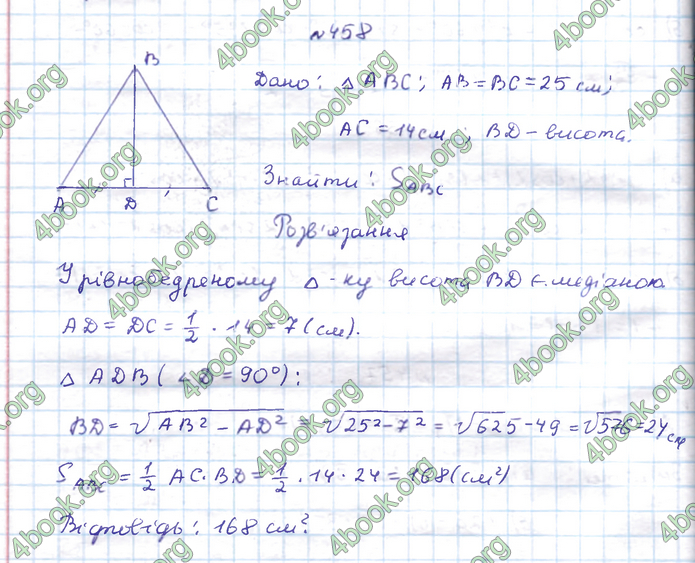 №458
B
Дано: △ABC; AB=BC=25 см;
AC=14см; BD-висота.
Знайти: S_ABC
A D C
Розв'язання
У рівнобедреному △-ку висота BD є медіаною
AD=DC=1/2·14=7(см).
△ADB(∠D=90°):
BD=√AB²-AD²=√25²-7²=√625-49=√576=24см
S_ABC=1/2 AC·BD=1/2·14·24=168(см²)
Відповідь: 168 см².
4book.org